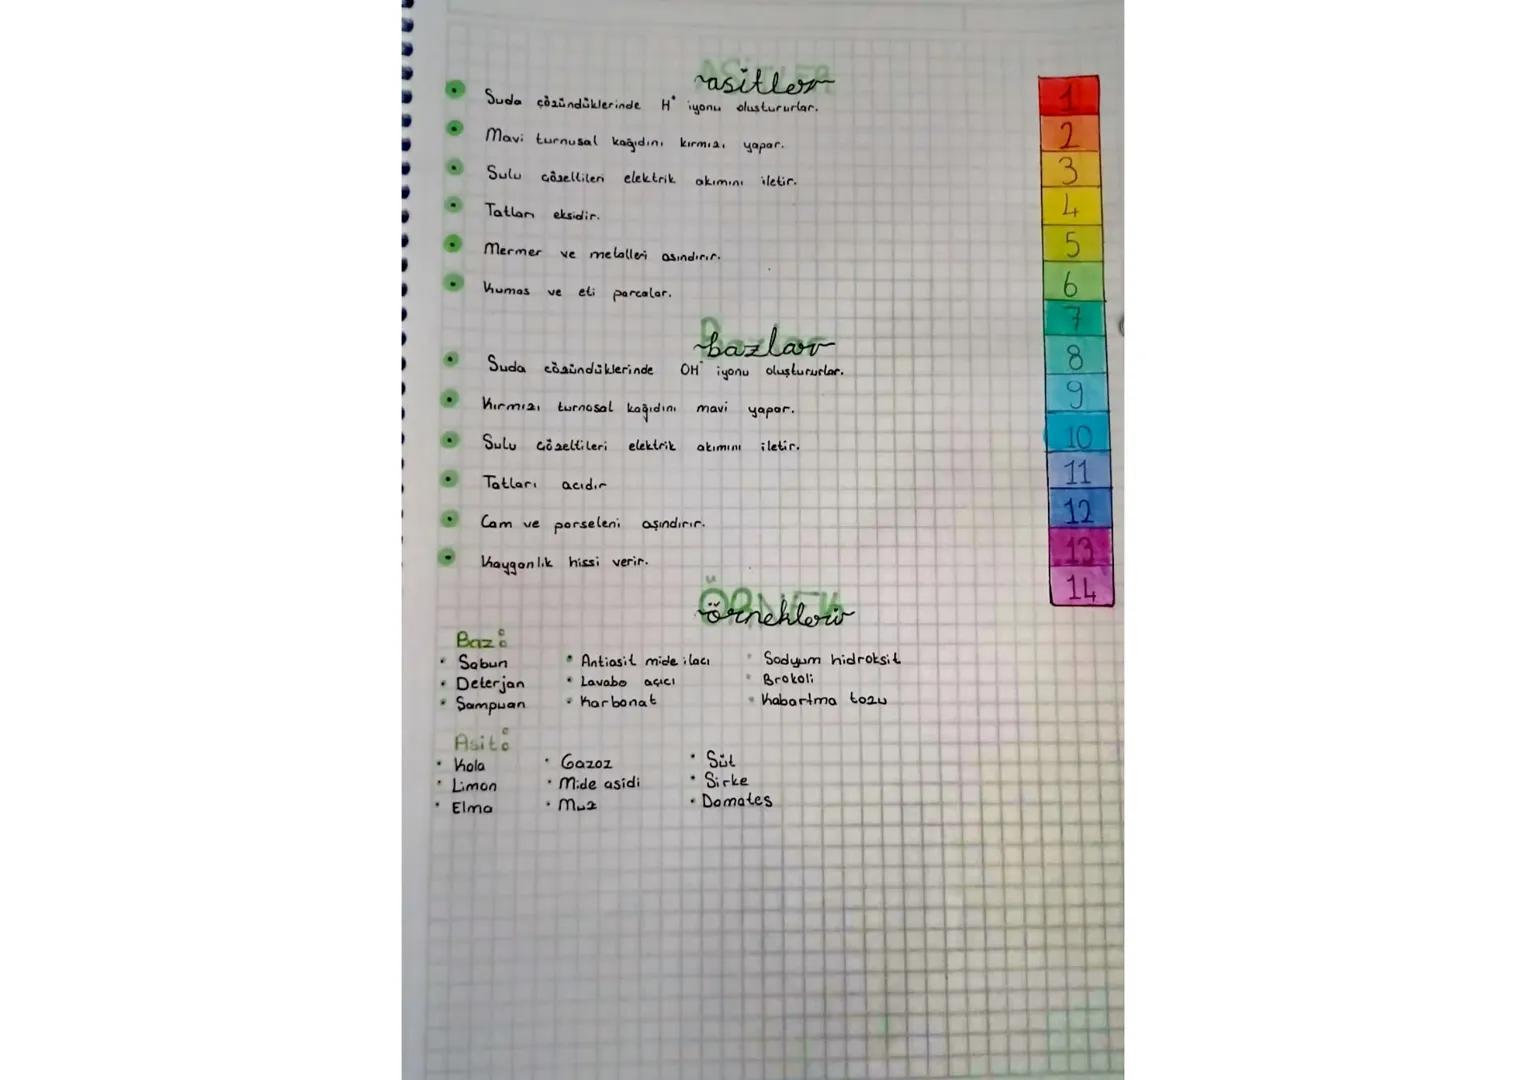 asitler
Suda çözündüklerinde H⁺ iyonu oluştururlar.
Mavi turnusal kağıdını kırmızı yapar.
Sulu çözeltileri elektrik akımını iletir.
Tatları eksidir.
Mermer ve metalleri asındırır.
Kumas ve eti parcalar.
bazlar
Suda cözündüklerinde OH⁻ iyonu oluştururlar.
Kırmızı turnosal kağıdını mavi yapar.
Sulu cözeltileri elektrik akımını iletir.
Tatları acıdır
Cam ve porseleni aşındırır.
Kayganlık hissi verir.
ÖRNEK
örnekleri
Baz:
Sabun
Deterjan
Sampuan
Antiasit mide ilacı
Lavabo açıcı
Karbonat
Sodyum hidroksit
Brokoli
Kabartma tozu
Asit:
Kola
Limon
Elma
Gazoz
Mide asidi
Muz
Süt
Sirke
Domates
1
2
3
4
5
6
7
8
9
10
11
12
13
14